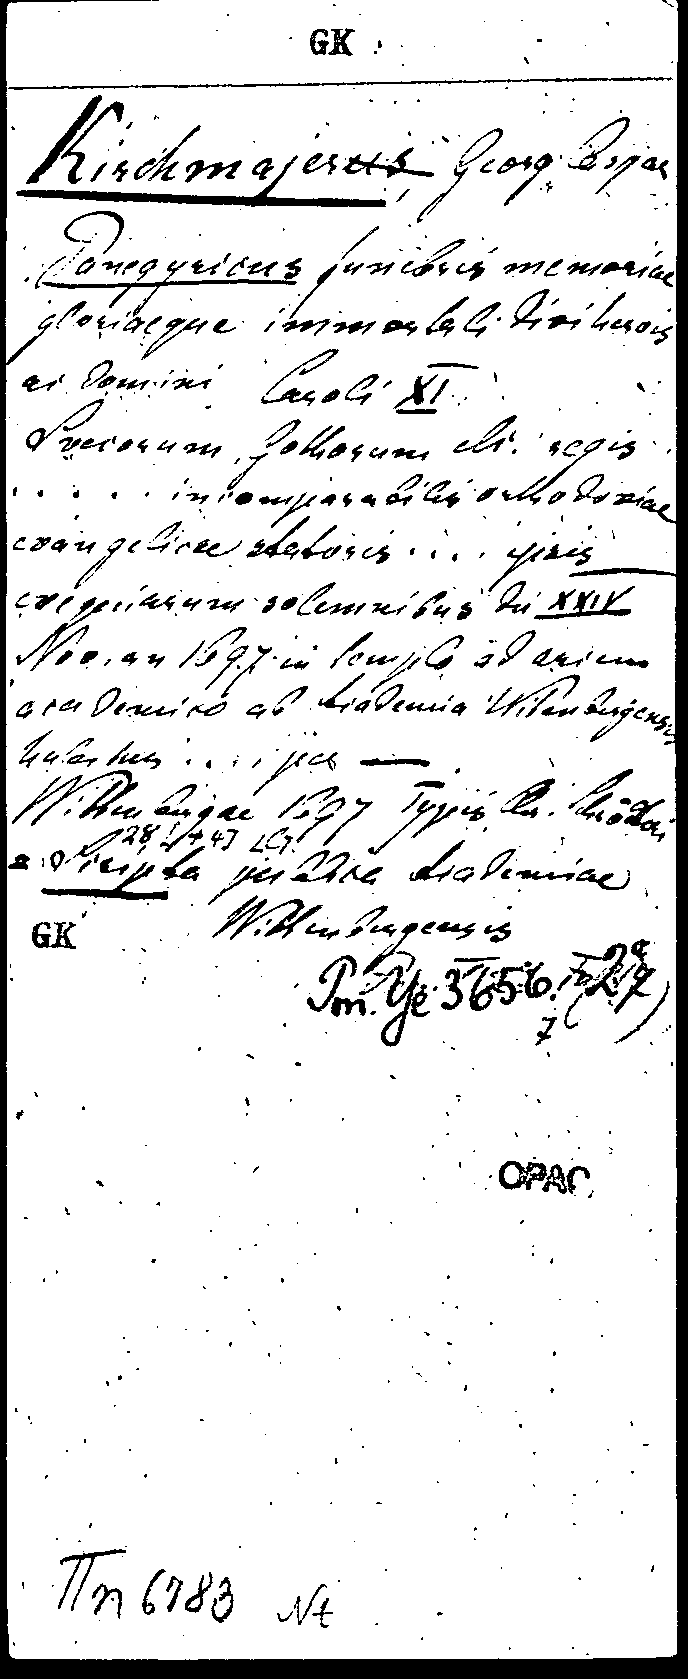 GK
Kirchmajerus, Georg Caspar
Panegyricus funebris memoriae
gloriaeque immortali divi herois
ac domini Caroli XI
Suecorum, Gothorum etc. regis
..... incomparabilis orthodoxiae
evangelicae statoris .... ipsis
exequiarum solemnibus die XXIV
Nov. an 1697 in templo ad arcem
academico ab Academia Wittenbergensi
habitus .... per —
Wittenbergae 1697 Typis Chr. Schrödteri
28
= Scripta publica Academiae
GK Wittenbergensis
Pon. Ye 3656,
7
OPAC
Πn 6783 Nt